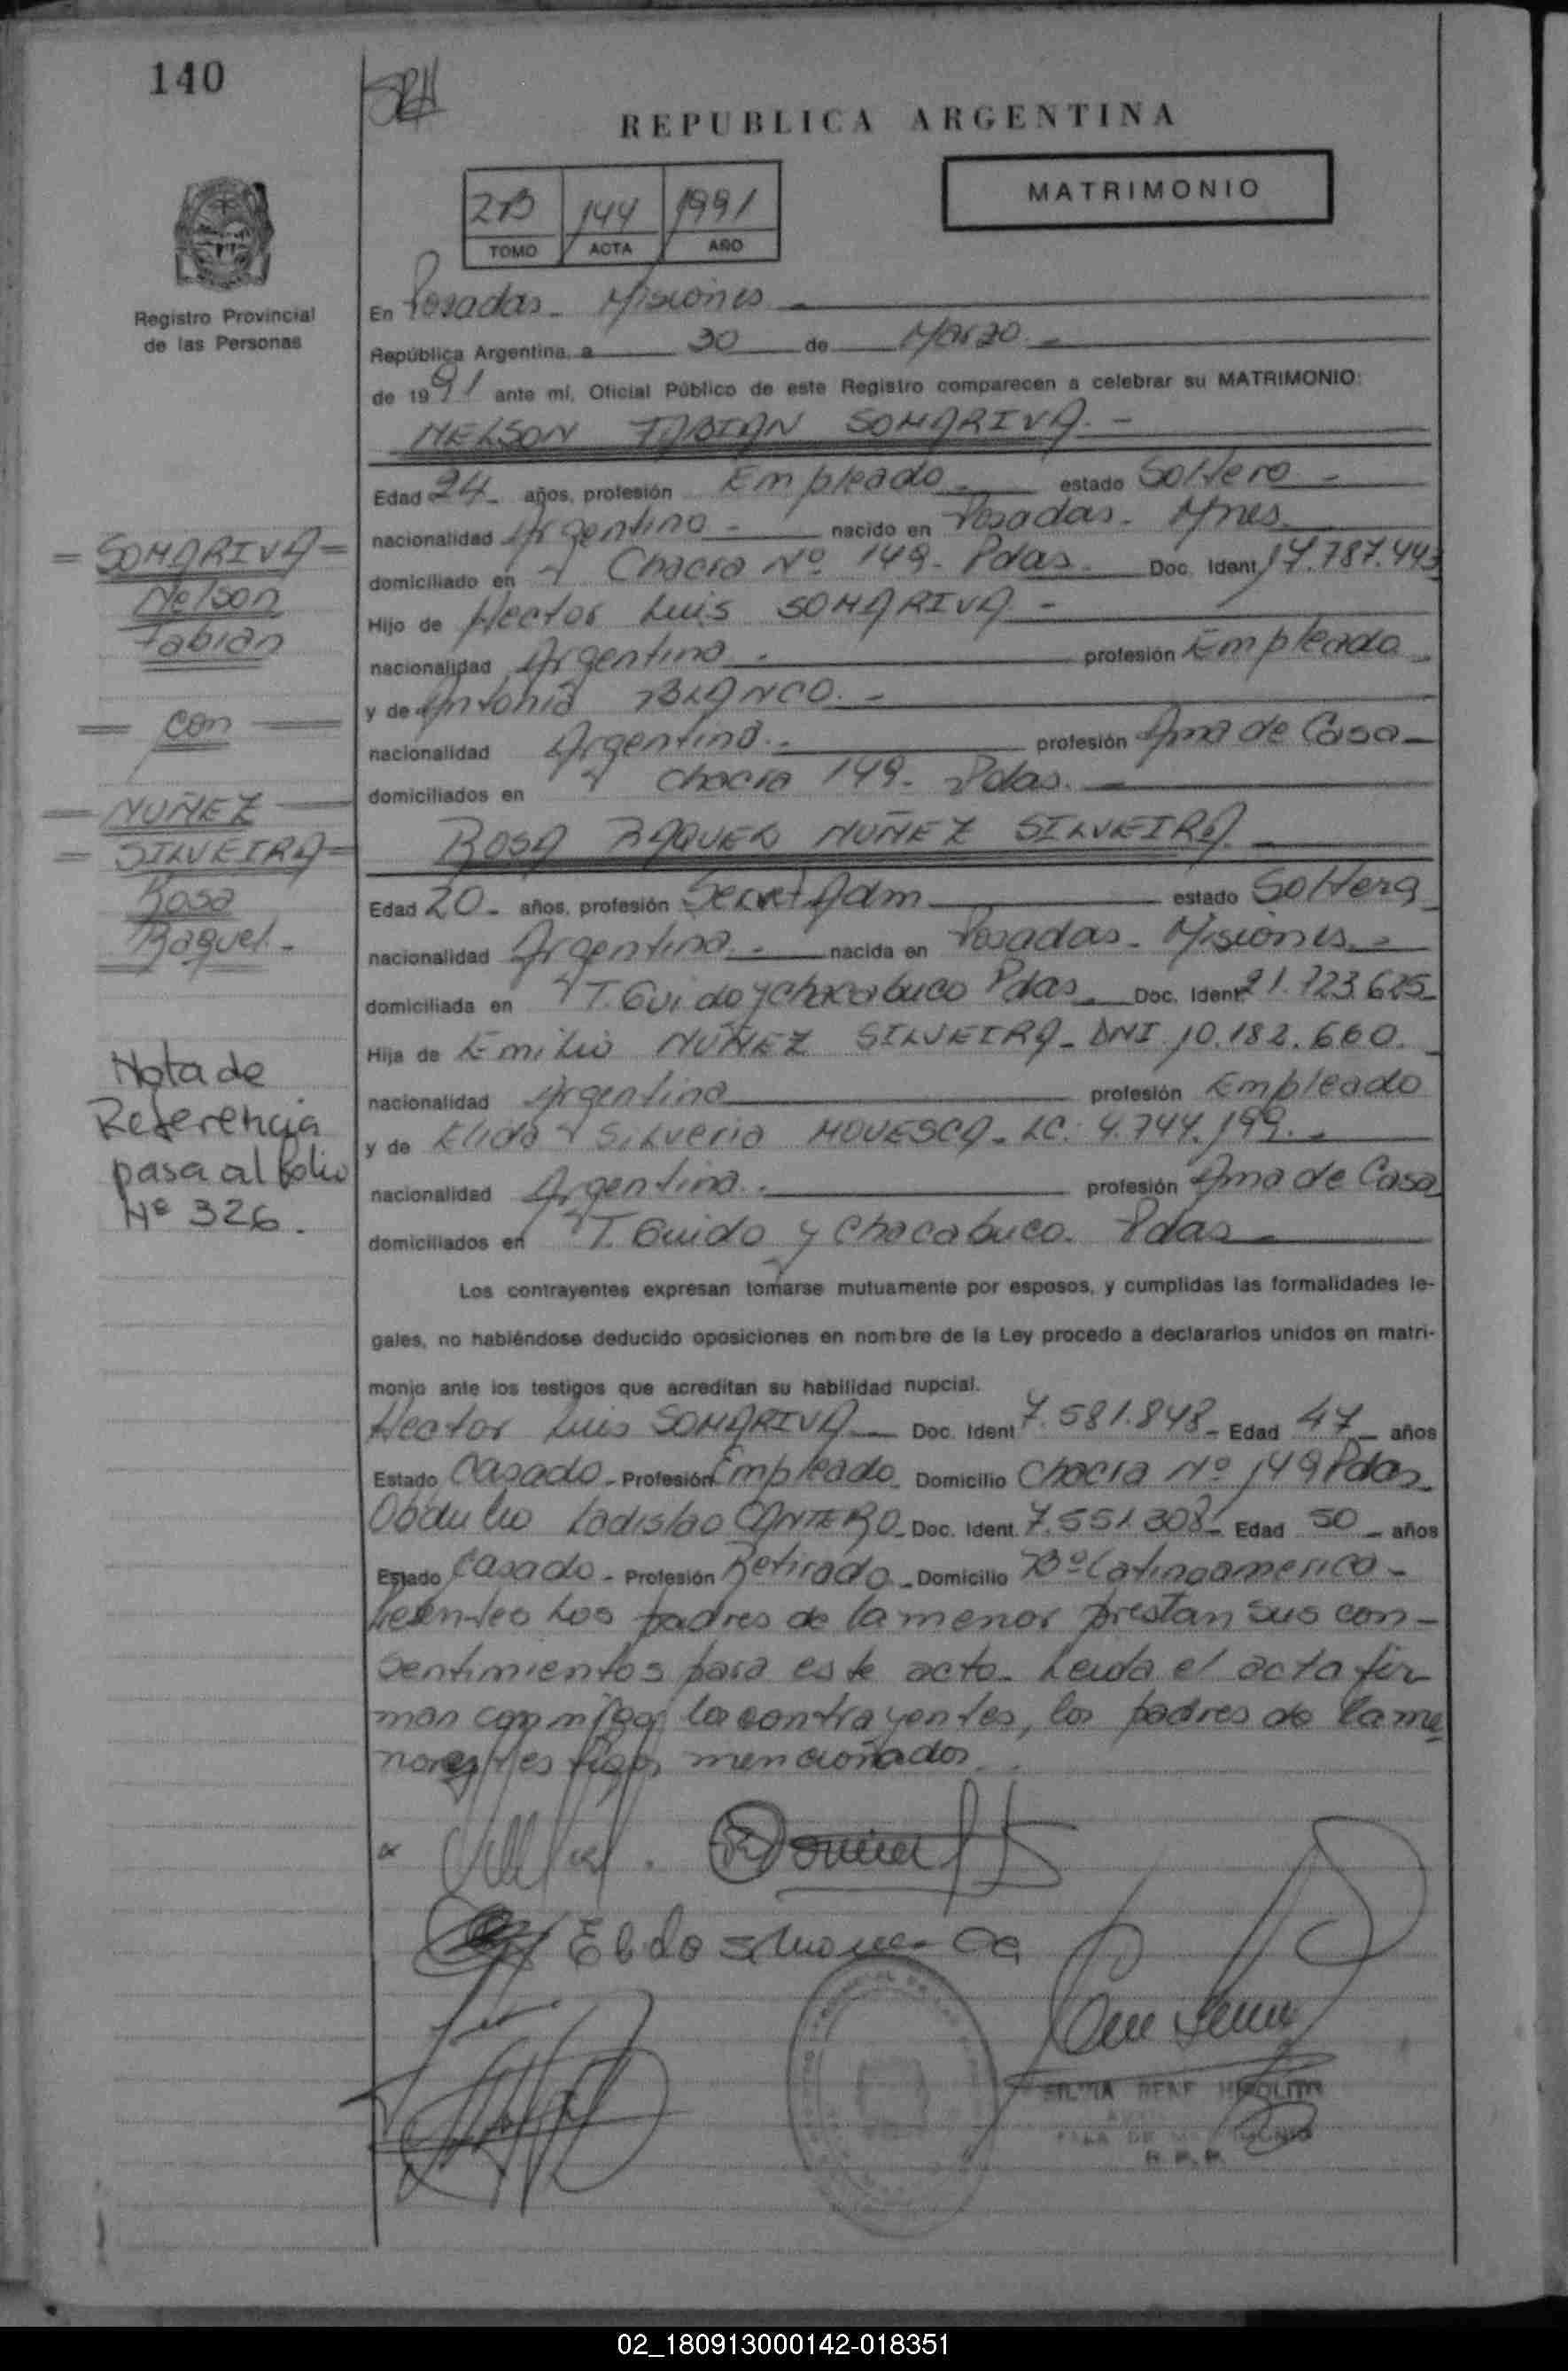 140
REPUBLICA ARGENTINA
MATRIMONIO
2B 144 1991
TOMO ACTA AÑO
Registro Provincial
de las Personas
En Posadas - Misiones
República Argentina, a 30 de Marzo
de 1991 ante mí, Oficial Público de este Registro comparecen a celebrar su MATRIMONIO:
NELSON FABIAN SOMARIVA -
Edad 24 - años, profesión Empleado - estado Soltero -
nacionalidad Argentino - nacido en Posadas - Mnes
domiciliado en Chacra Nº 149 - Pdas. Doc. Ident. 17.787.443
Hijo de Hector Luis SOMARIVA -
nacionalidad Argentino - profesión Empleado
y de Antonia BLANCO. -
nacionalidad Argentina - profesión Ama de Casa -
domiciliados en Chacra 149 - Pdas. -
ROSA RAQUEL NUÑEZ SILVEIRA
Edad 20 - años, profesión Secret Adm estado Soltera
nacionalidad Argentina - nacida en Posadas - Misiones -
domiciliada en T. Guido y Chacabuco Pdas Doc. Ident. 21.723.625
Hija de Emilio NUÑEZ SILVEIRA - DNI 10.182.660.
nacionalidad Argentino profesión Empleado
y de Elida Silveria MOVESCA - LC. 4.744.199. -
nacionalidad Argentina. profesión Ama de Casa
domiciliados en T. Guido y Chacabuco. Pdas -
= SOMARIVA =
Nelson
Fabian
= con =
= NUÑEZ
= SILVEIRA =
Rosa
Raquel -
Nota de
Referencia
pasa al folio
Nº 326.
Los contrayentes expresan tomarse mutuamente por esposos, y cumplidas las formalidades le-
gales, no habiéndose deducido oposiciones en nombre de la Ley procedo a declararlos unidos en matri-
monio ante los testigos que acreditan su habilidad nupcial.
Hector Luis SOMARIVA Doc. Ident 7.581.848 - Edad 47 - años
Estado Casado - Profesión Empleado - Domicilio Chacra Nº 149 Pdas.
Obdulio Ladislao CANTERO - Doc. Ident. 7.551.308 - Edad 50 - años
Estado Casado - Profesión Retirado - Domicilio Bº Latinoamerica -
Presentes los padres de la menor prestan sus con-
sentimientos para este acto - Leida el acta fir
man conmigo los contrayentes, los padres de la me
nor y testigos mencionados
SILVIA RENE HIPOLITO
R. P. P.
02_180913000142-018351